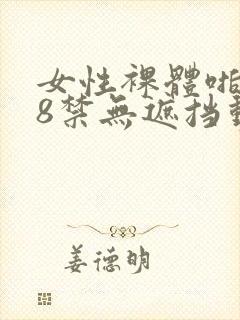 女性裸體啪
8禁無遮挡動
姜德明